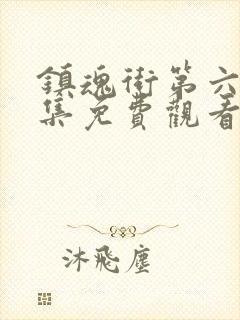 鎮魂街第六
集免費觀看
沐飛塵